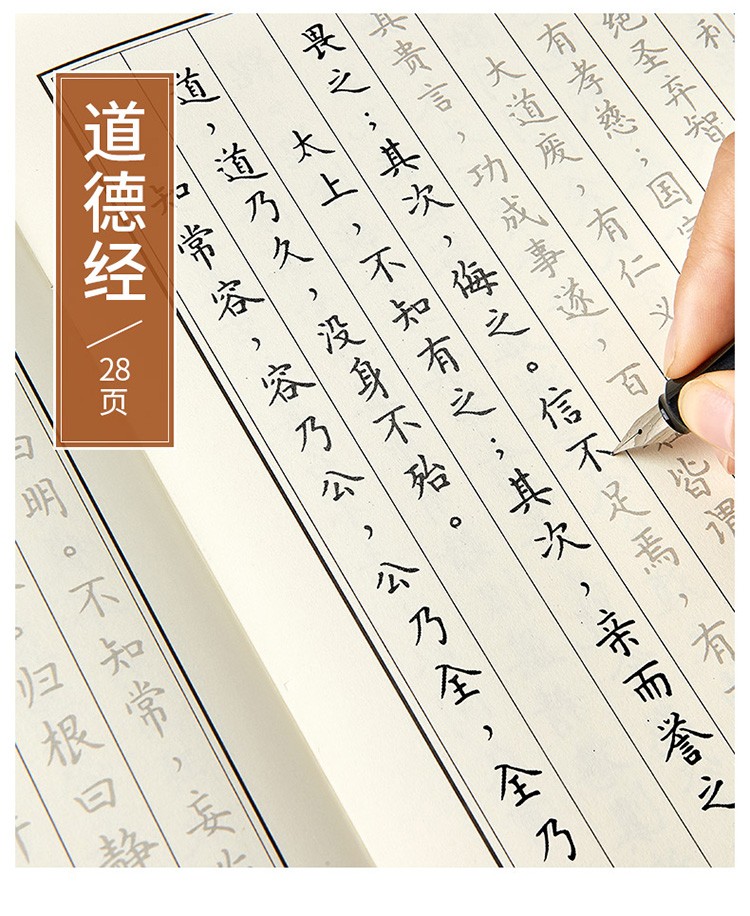 道德经
28
页
归根曰静
曰明。不知常，妄
知常容，容乃公，公乃全，全乃
道，道乃久，没身不殆。
太上，不知有之；其次，亲而誉之
畏之；其次，侮之。信不足焉，有
其贵言，功成事遂，百姓皆谓
大道废，有仁义
有孝慈；国家
绝圣弃智
利